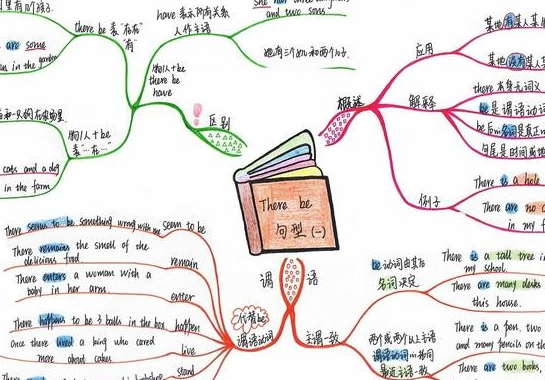 there be 表"存在"
"有"
are some
in the garden
物/人+be
there be
have
have 表示所有关系
人作主语
and two sons
她有三个女儿和两个儿子.
区别
物/人+be
表"…在…"
cats and a dog
in the farm
There be
句型(一)
概述
应用
某地有某人某
某地没有某人某
解释
there 本身无词义
be是谓语动词
be后名词是真正
句尾是时间或地
例子
There is a hole
There are no c
in my
There seems to be something wrong with me
seem to be
There remains the smell of the
delicious food.
remain
There enters a woman with a
baby in her arm.
enter
There happens to be 3 balls in the box
happen
once there lived a king who cared
more about cakes.
live
stand
代替be
谓语动词
谓语
主谓一致
be动词由其后
名词决定
There is a tall tree in
my school.
There are many desks
this house.
两个或两个以上主语
谓语动词be和
最近主语一致
There is a pen, two
and many pencils on the
There are two books,